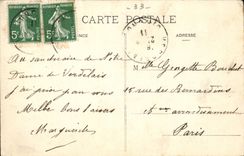 - 33 -
CARTE POSTALE
ADRESSE
5c
5c
Au sanctuaire de Notre
Dame de Verdelais
j'ai prié pour vous
Mille bons baisers
Marguerite
Mlle Georgette Bouchet
15 rue des Bernardins
5e arrondissement
Paris